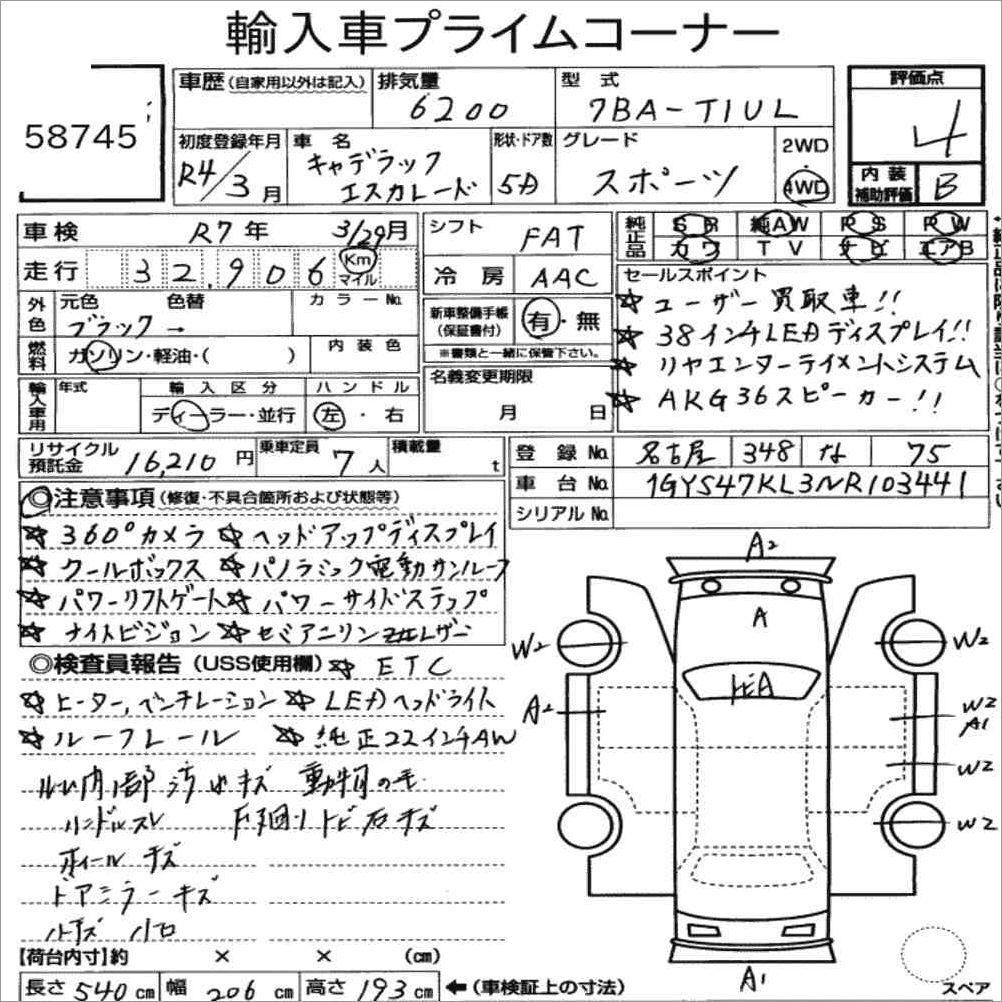 輸入車プライムコーナー
58745
車歴(自家用以外は記入) 排気量 6200 型式 7BA-T1UL 評価点 4
初度登録年月 R4/3月 車名 キャデラック エスカレード 形状・ドア数 5D グレード スポーツ 2WD 4WD 内装補助評価 B
車検 R7年 3/29月
走行 32,906 Km マイル
外色 元色 ブラック→ 色替 カラーNo.
燃料 ガソリン・軽油・( ) 内装色
輸入車用 年式 輸入区分 ディーラー・並行 ハンドル 左・右
シフト FAT
冷房 AAC
新車整備手帳(保証書付) 有・無
※書類と一緒に保管下さい。
名義変更期限 月 日
純正品 SR 純AW PS PW
カワ TV ナビ エアB
セールスポイント
☆ユーザー買取車!!
☆38インチLEDディスプレイ!!
☆リヤエンターテイメントシステム
☆AKG36スピーカー!!
リサイクル預託金 16,210円 乗車定員 7人 積載量 t
登録No. 名古屋 348 な 75
車台No. 1GYS47KL3NR103441
シリアルNo.
◎注意事項(修復・不具合箇所および状態等)
☆360°カメラ ☆ヘッドアップディスプレイ
☆クールボックス ☆パノラミック電動サンルーフ
☆パワーリフトゲート ☆パワーサイドステップ
☆ナイトビジョン ☆セミアニリン レザー
◎検査員報告(USS使用欄) ☆ETC
☆ヒーター,ベンチレーション ☆LEDヘッドライト
☆ルーフレール ☆純正22インチAW
内部汚れキズ 動物の毛
ハンドルスレ 下廻りトビ石キズ
ホイールキズ
ドアミラーキズ
A2
A
W2 W2
A2 W2
A1
W2
W2
A1
【荷台内寸】約 × × (cm)
長さ 540cm 幅 206cm 高さ 193cm ←(車検証上の寸法)
スペア